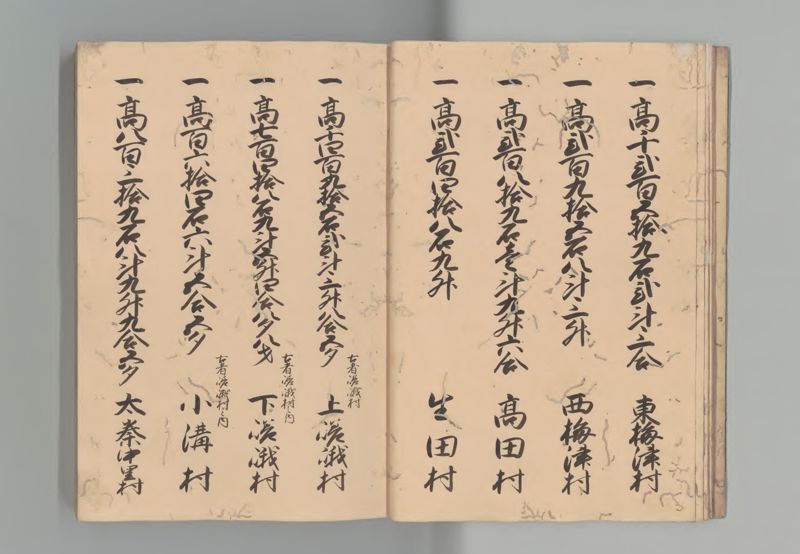 一高千弐百五拾九石弐斗三合 東梅津村
一高弐百九拾五石八斗三升 西梅津村
一高弐百八拾九石壱斗九升六合 高田村
一高弐百四拾八石九升 生田村
一高千四百九拾五石弐斗三升八合五夕 上嵯峨村
古者嵯峨村
一高七百四拾八石九斗五升四合八夕八才 下嵯峨村
古者嵯峨村之内
一高百六拾四石六斗五合五夕 小溝村
古者嵯峨村之内
一高八百三拾九石八斗九升九合五夕 太秦中里村